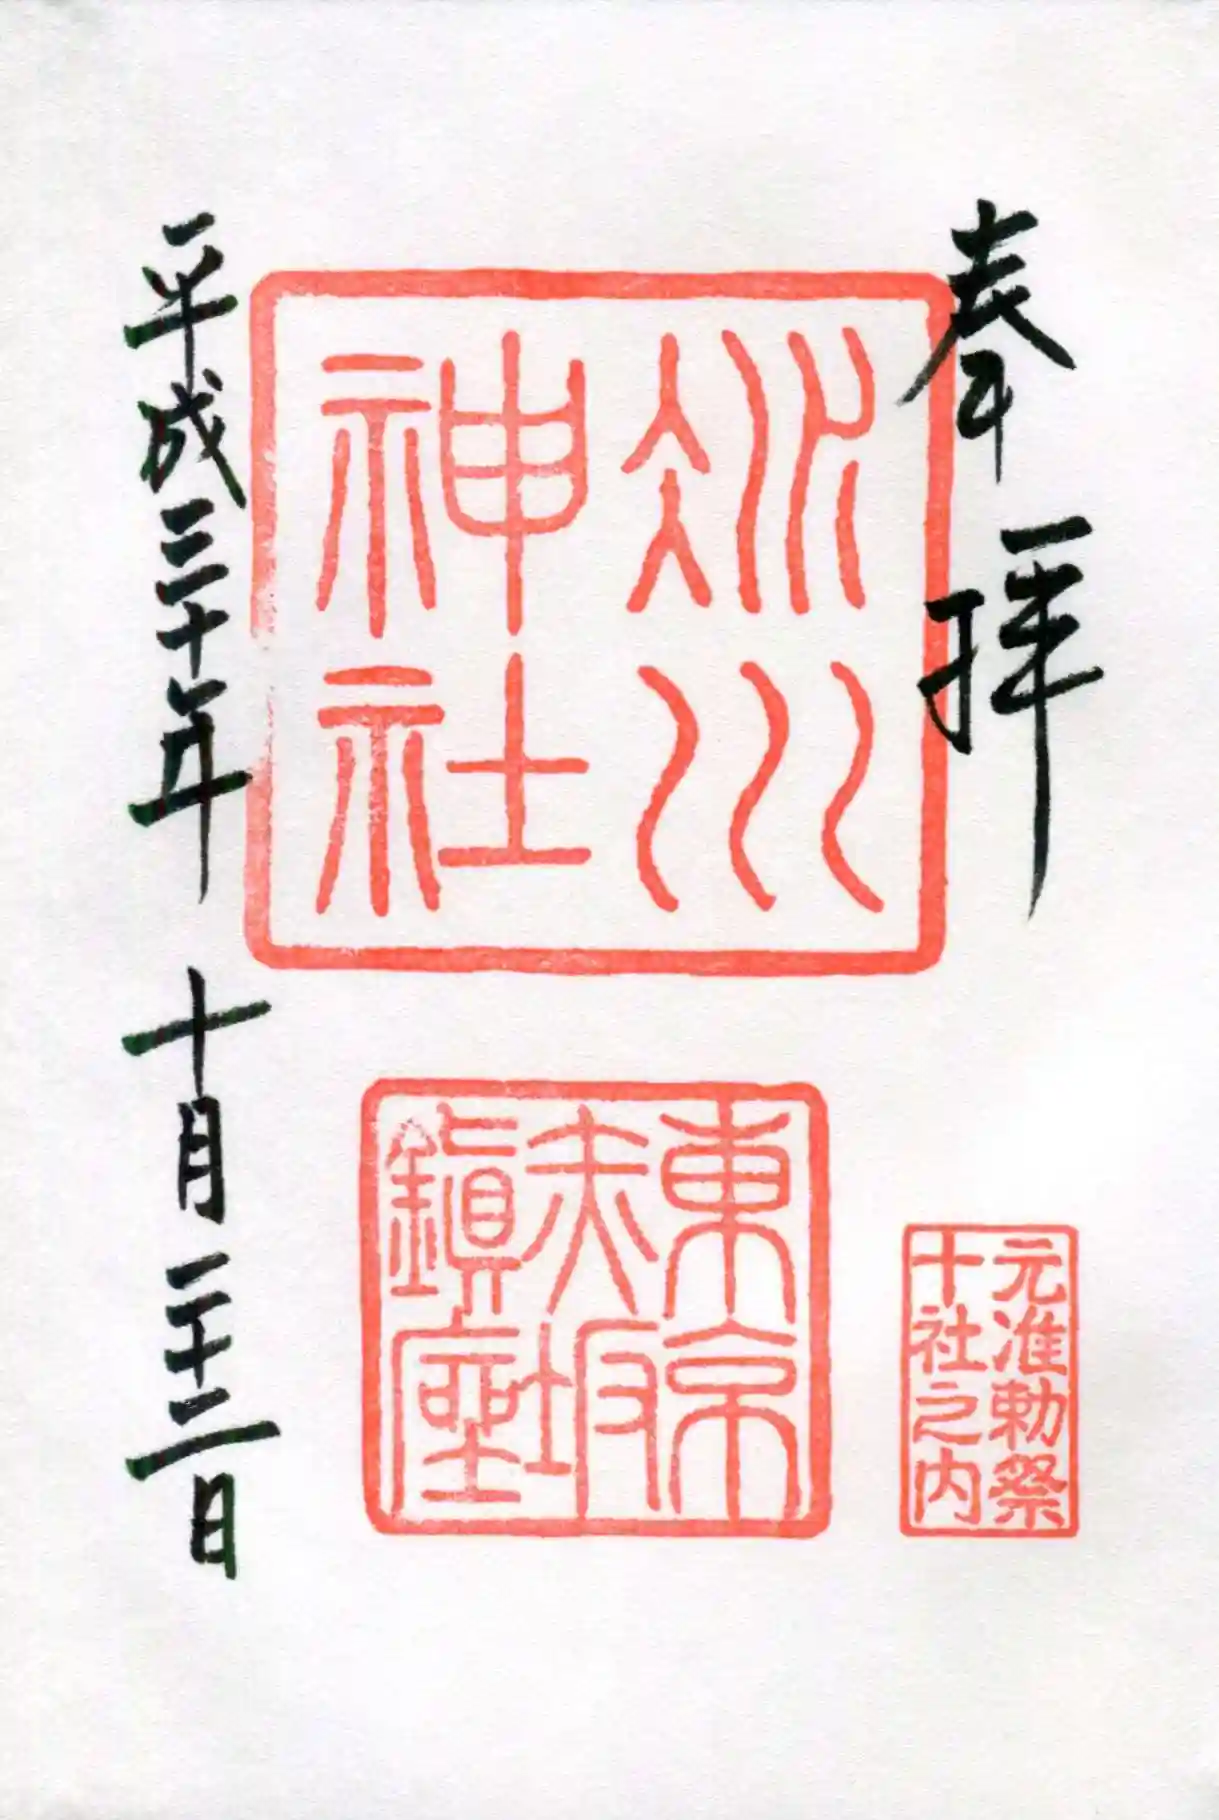 奉拝
氷川
神社
東京
赤坂
鎭座
元准勅祭
十社之内
平成三十年 十月二十二日